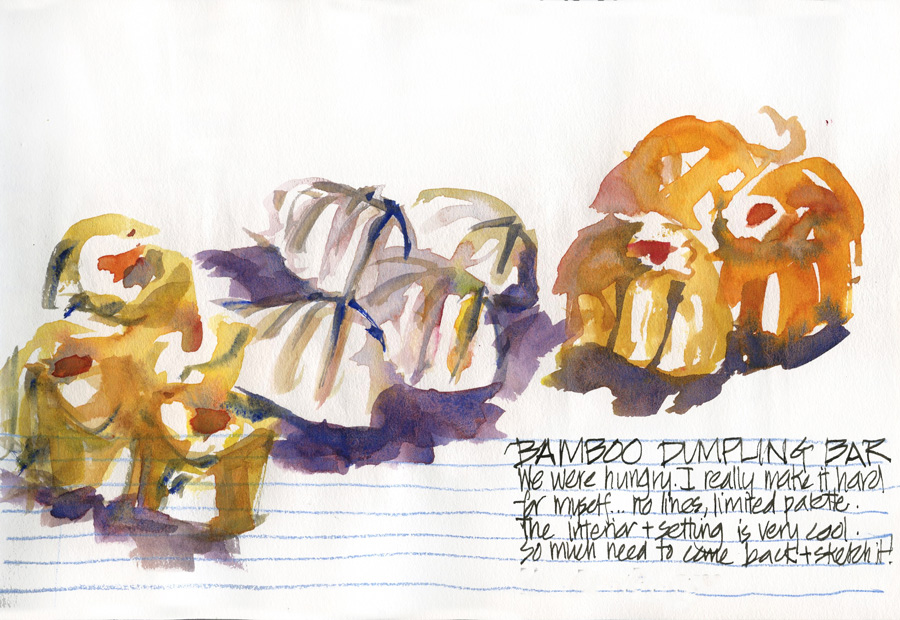 BAMBOO DUMPLING BAR
We were hungry. I really make it hard
for myself... no lines, limited palette.
The interior + setting is very cool.
so much need to come back + sketch it!